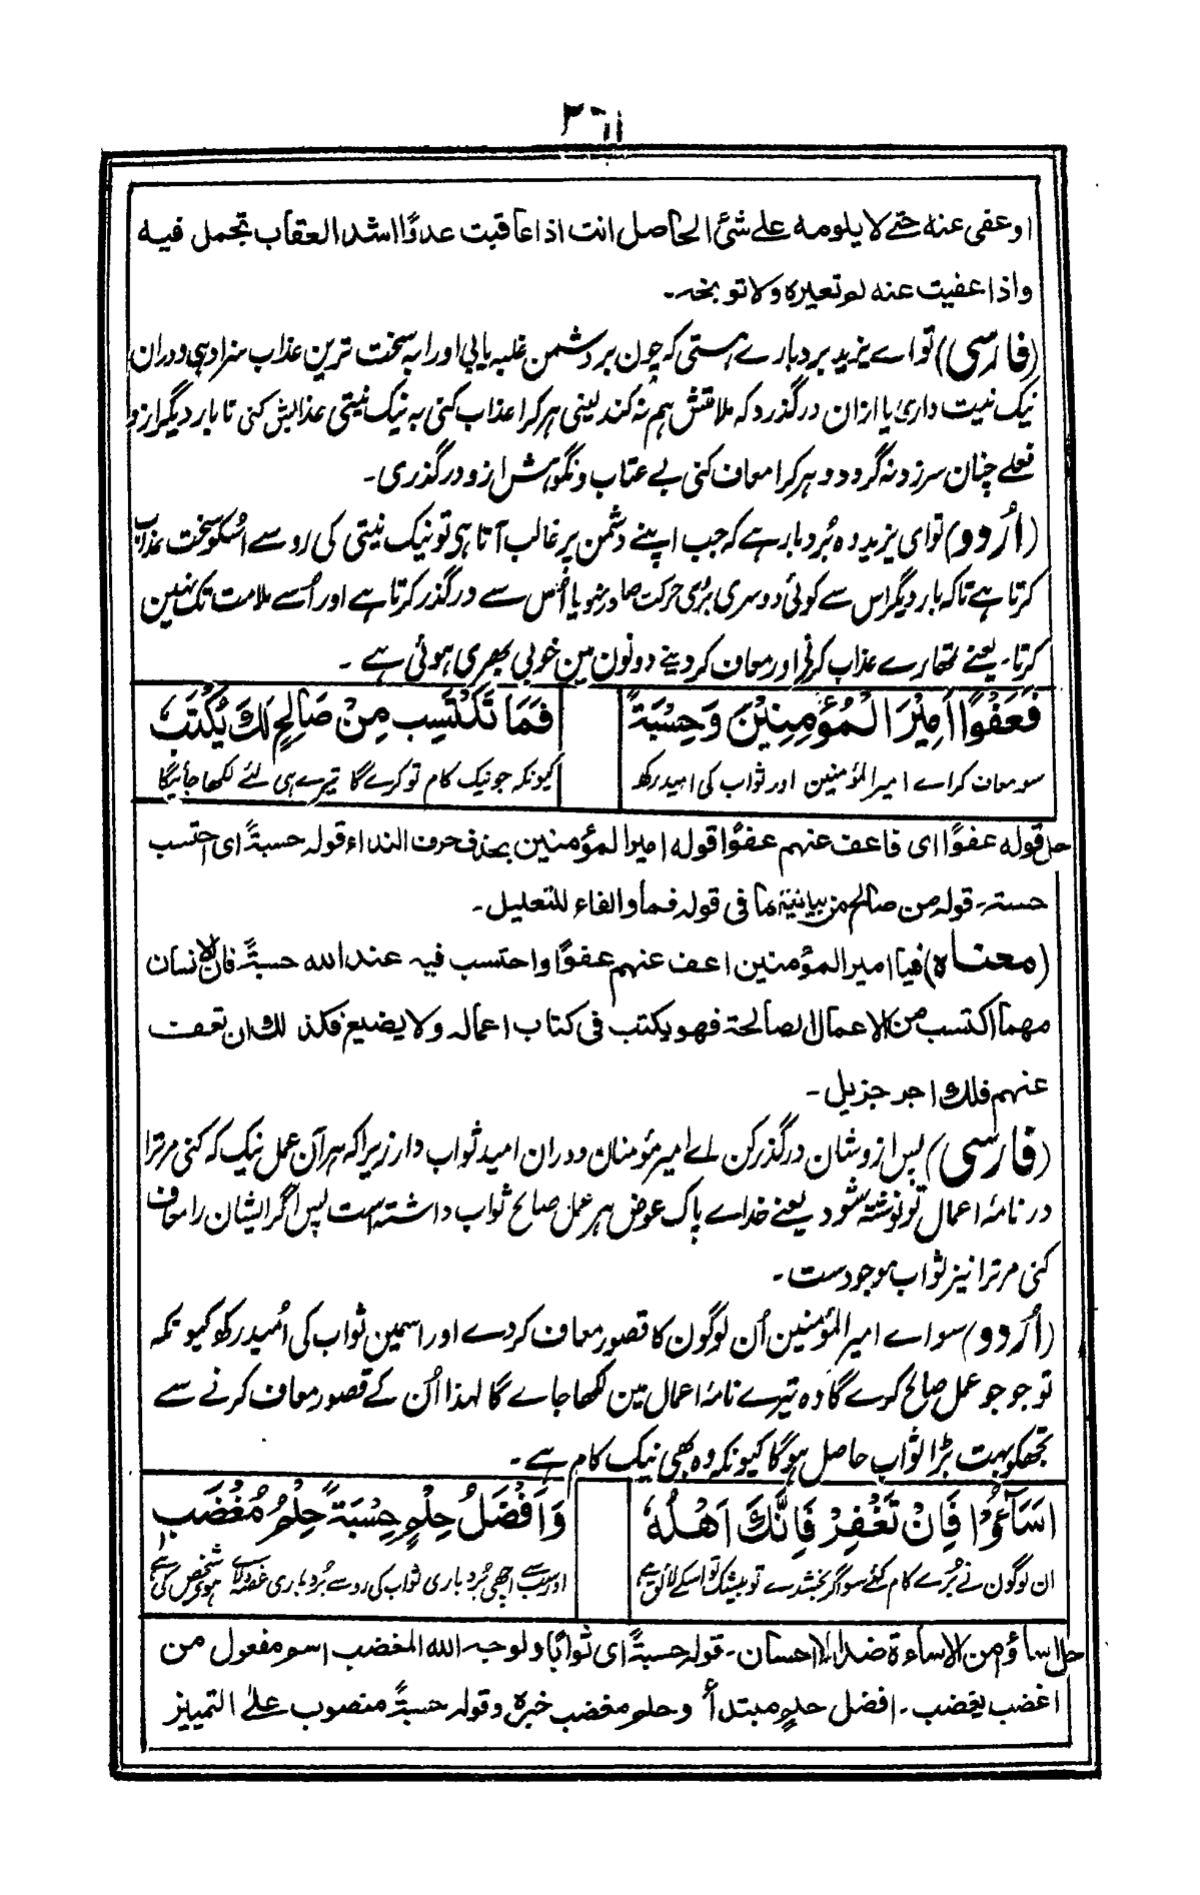 او عفی عنه حتے لا یلومه علے شئ الحاصل انت اذا عاقبت عدوًا اشد العقاب تجمل فیه
واذا عفیت عنه لم تعیره ولا توبخه۔
(فارسی) تو اے یزید بردبارے ہستی کہ چون بر دشمن غلبہ یابی اورا بہ سخت ترین عذاب سزا دہی و دران
نیک نیت داری یا ازان درگذرد کہ ملامتش ہم نہ کند لیعنی ہر کرا عذاب کنی بہ نیک نیتی عذابش کنی تا بار دیگر ازو
فعلے چنان سرزد نہ گردد و ہر کرا معاف کنی بے عتاب و نکوہش ازو درگذری۔
(اُردو) تو ای یزید وہ بُردبار ہے کہ جب اپنے دشمن پر غالب آتا ہی تو نیک نیتی کی رو سے اُسکو سخت عذاب
کرتا ہے تاکہ بار دیگر اس سے کوئی دوسری بُری حرکت صادر نہو یا اُس سے درگذر کرتا ہے اور اُسے ملامت تک نہین
کرتا۔ یعنے تمھارے عذاب کرنے اور معاف کر دینے دونون مین خوبی بھری ہوئی ہے ۔
فَعَفْوًا اَمِیْرَ الْمُؤْمِنِیْنَ وَحِسْبَةً
فَمَا تَکْتَسِب مِنْ صَالِحٍ لَكَ یُکْتَبُ
سو معاف کر اے امیر المؤمنین اور ثواب کی امید رکھ
کیونکہ جو نیک کام تو کرے گا تیرے ہی لئے لکھا جائیگا
حل قوله عفوًا ای فاعف عنهم عفوًا قوله امیر المؤمنین بحذف حرف النداء قوله حسبةً ای احتسب
حسبته۔ قوله من صالح من بیانیة لما فی قوله فما والفاء للتعلیل۔
(معناه) فیا امیر المؤمنین اعف عنهم عفوًا واحتسب فیه عند الله حسبةً فان الانسان
مهما اکتسب من الاعمال الصالحة فهو یکتب فی کتاب اعماله ولا یضیع فکذلك ان تعف
عنهم فلك اجر جزیل۔
(فارسی) پس ازوشان درگذر کن اے امیر مؤمنان و دران امید ثواب دار زیرا کہ ہر آن عمل نیک کہ کنی مر ترا
در نامۂ اعمال تو نوشتہ شود یعنے خداے پاک عوض ہر عمل صالح ثواب داشتہ است پس اگر ایشان را معاف
کنی مر ترا نیز ثواب موجودست۔
(اُردو) سو اے امیر المؤمنین اُن لوگون کا قصور معاف کر دے اور اسمین ثواب کی اُمید رکھ کیونکہ
تو جو جو عمل صالح کرے گا وہ تیرے نامۂ اعمال مین لکھا جاے گا لہذا اُن کے قصور معاف کرنے سے
تجھکو بہت بڑا ثواب حاصل ہوگا کیونکہ وہ بھی نیک کام ہے ۔
اَسَآءُوْا فَاِنْ تَغْفِرْ فَاِنَّكَ اَهْلُهٗ
وَاَفْضَلُ حِلْمٍ حِسْبَةً حِلْمُ مُغْضَبٖ
ان لوگون نے بُرے کام کئے سو اگر بخشدے تو بیشک تو اسکے لائق ہے
اور سب اچھی بُردباری ثواب کی رو سے بُردباری غصہ دلائے ہوئے شخص کی ہے
حل اساؤ من الاساءة ضد الاحسان۔ قوله حسبةً ای ثوابًا ولوجه الله المغضب اسم مفعول من
اغضب یغضب۔ افضل حلمٍ مبتدأ وحلم مغضب خبره وقوله حسبةً منصوب علے التمییز